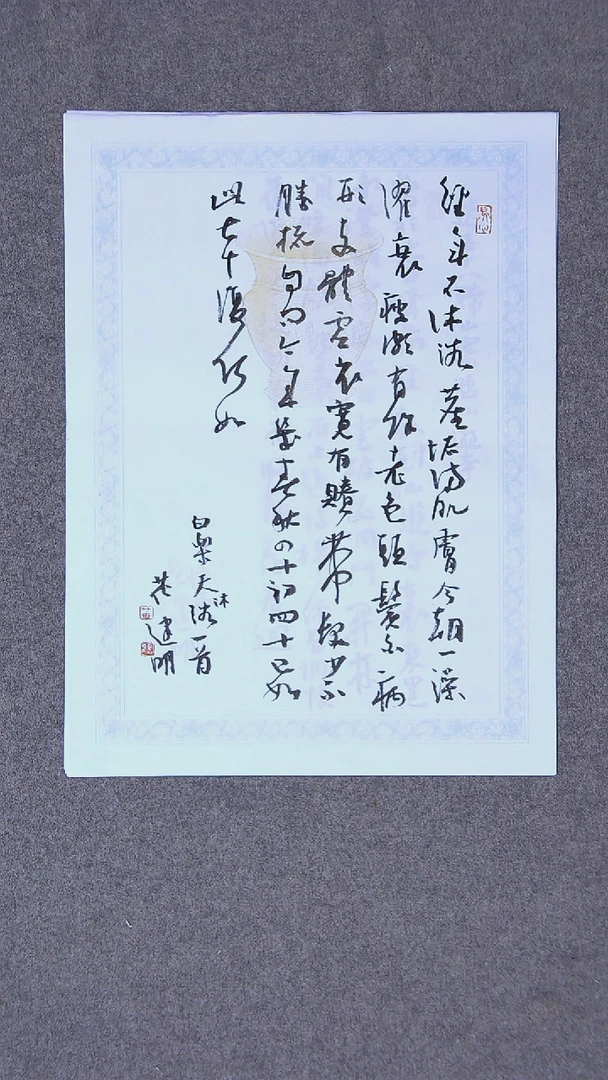 經年不沐浴塵垢滿肌膚今朝一澡
濯衰瘦頗有餘老色頭鬢白病
形支體虛衣寬有賸帶髮少不
勝梳自問今年幾春秋四十初四十已如
此七十復何如
白樂天沐浴一首
建明